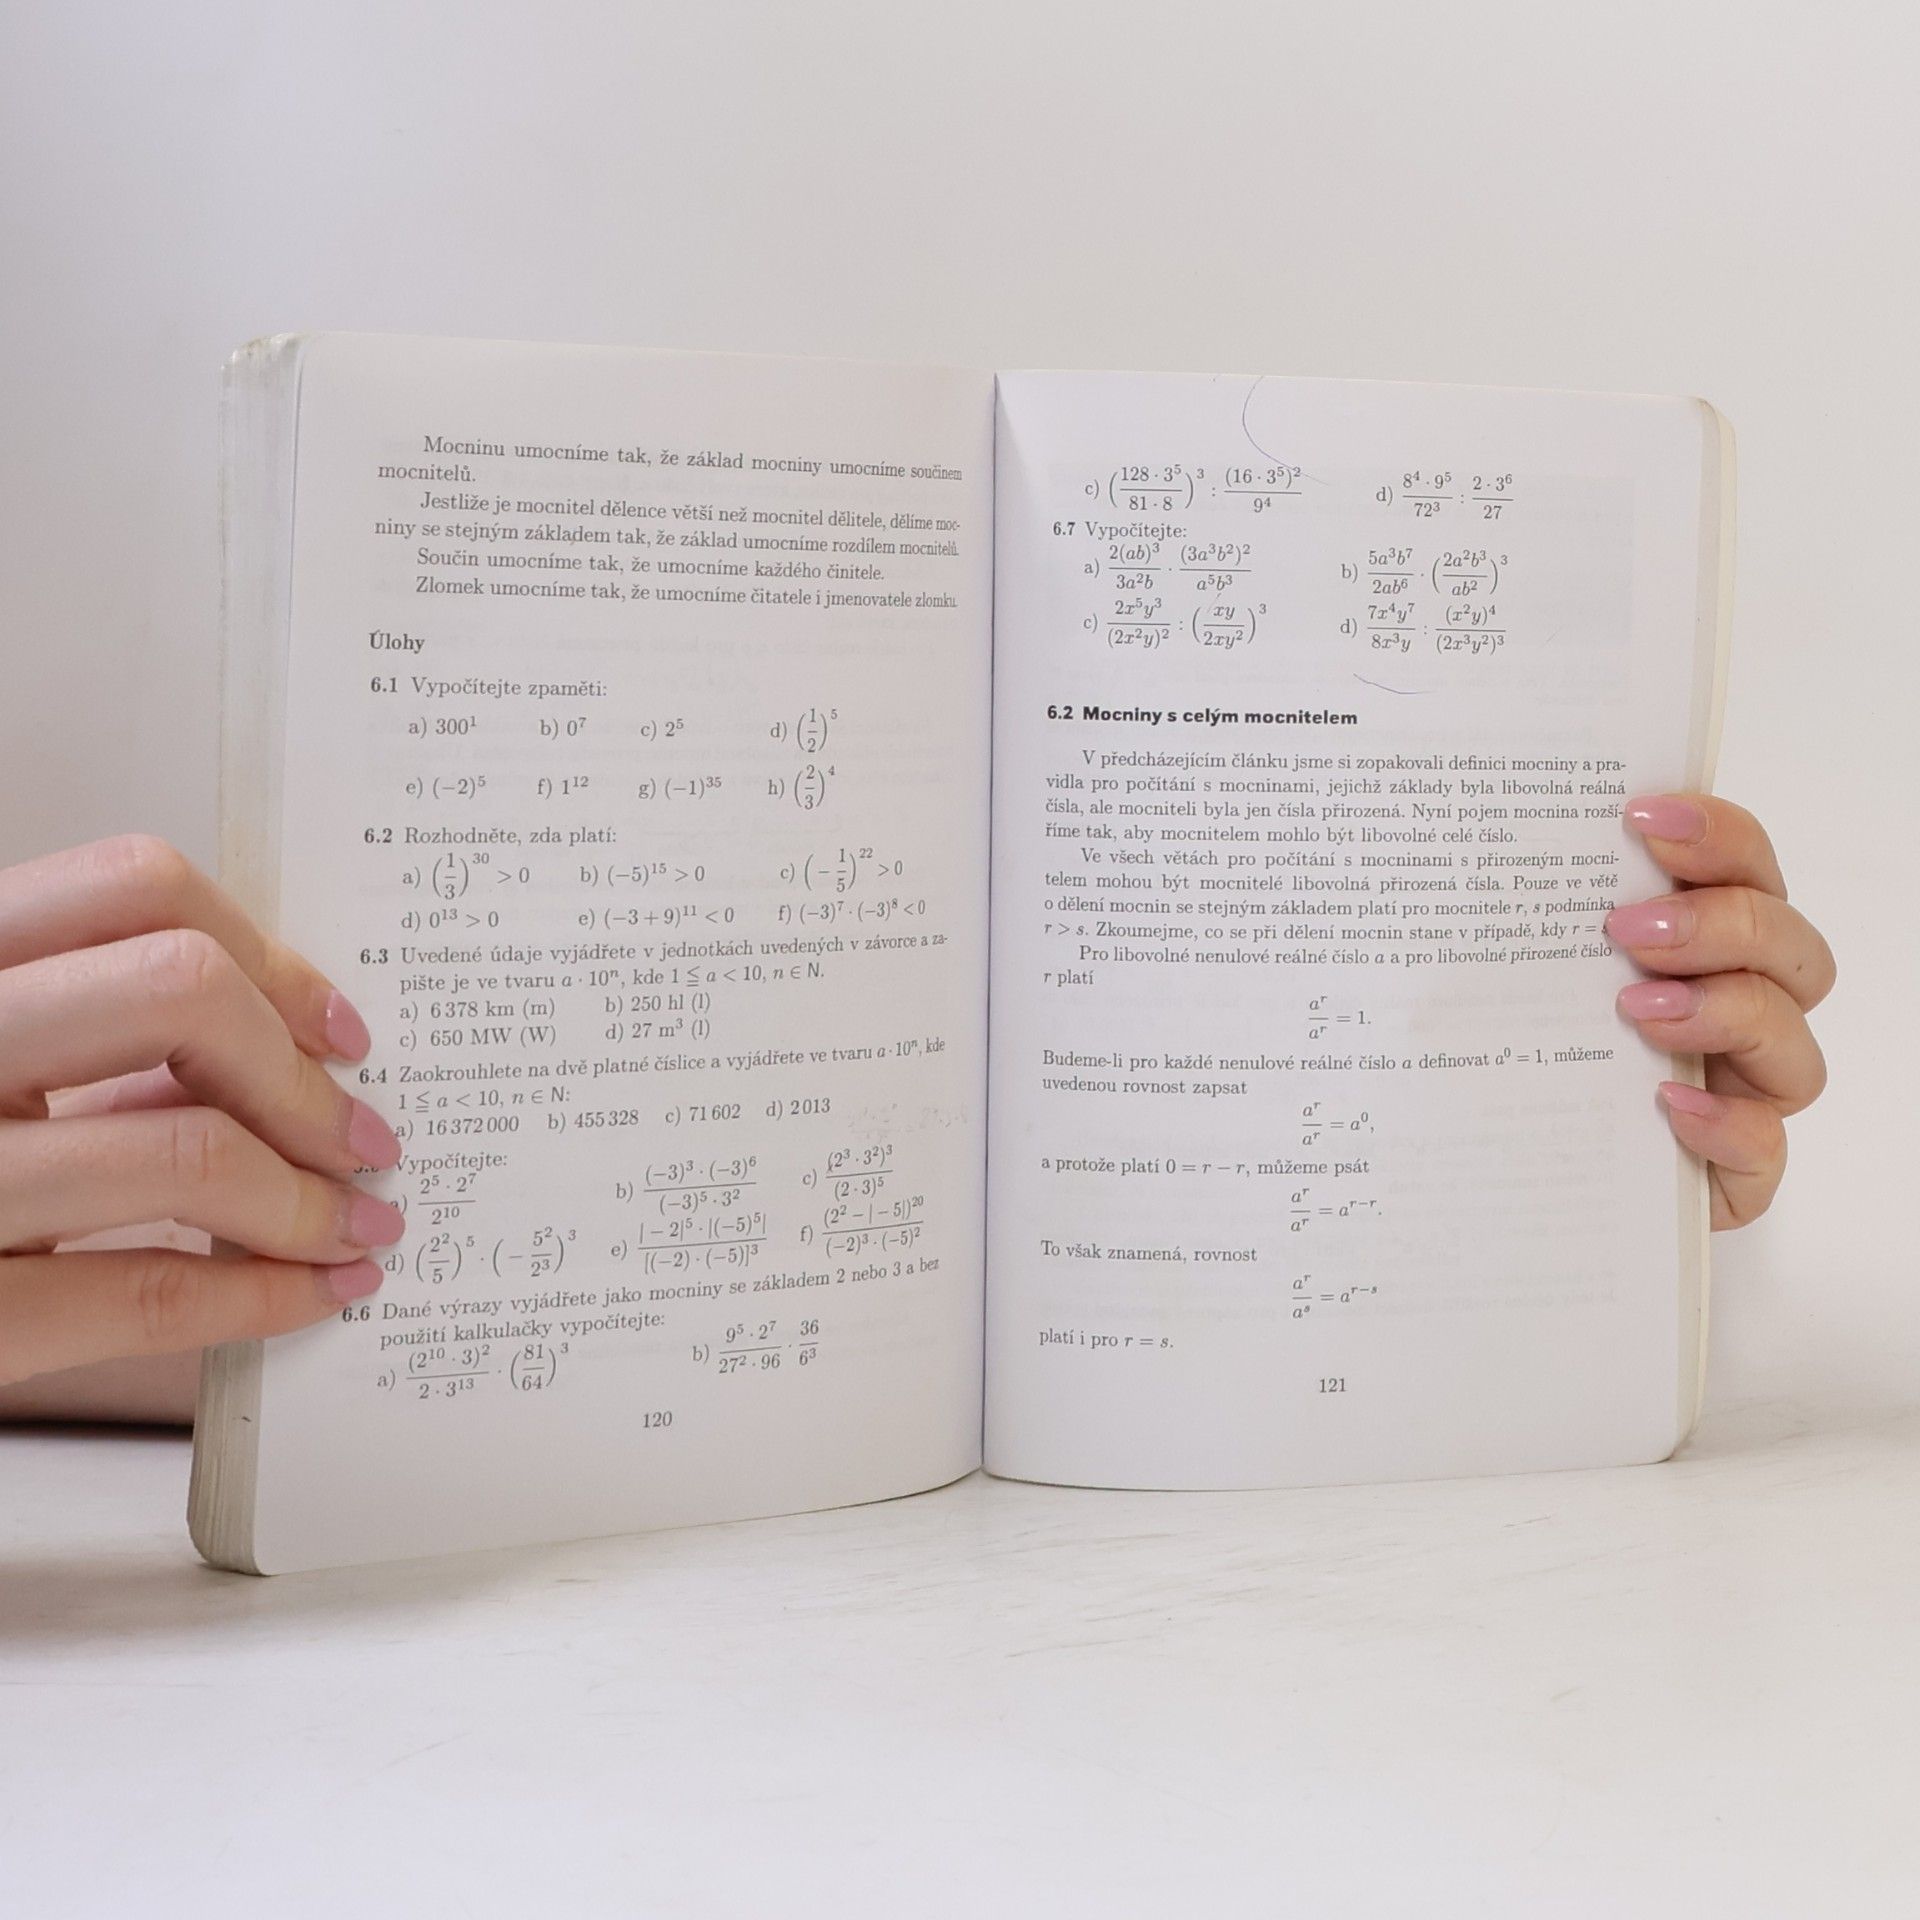 Mocninu umocníme tak, že základ mocniny umocníme součinem
mocnitelů.
Jestliže je mocnitel dělence větší než mocnitel dělitele, dělíme moc-
niny se stejným základem tak, že základ umocníme rozdílem mocnitelů.
Součin umocníme tak, že umocníme každého činitele.
Zlomek umocníme tak, že umocníme čitatele i jmenovatele zlomku.
Úlohy
6.1 Vypočítejte zpaměti:
a) 300¹ b) 0⁷ c) 2⁵ d) (1/2)⁵
e) (−2)⁵ f) 1¹² g) (−1)³⁵ h) (2/3)⁴
6.2 Rozhodněte, zda platí:
a) (1/3)³⁰ > 0 b) (−5)¹⁵ > 0 c) (−1/5)²² > 0
d) 0¹³ > 0 e) (−3 + 9)¹¹ < 0 f) (−3)⁷ · (−3)⁸ < 0
6.3 Uvedené údaje vyjádřete v jednotkách uvedených v závorce a za-
pište je ve tvaru a · 10ⁿ, kde 1 ≦ a < 10, n ∈ N.
a) 6 378 km (m) b) 250 hl (l)
c) 650 MW (W) d) 27 m³ (l)
6.4 Zaokrouhlete na dvě platné číslice a vyjádřete ve tvaru a · 10ⁿ, kde
1 ≦ a < 10, n ∈ N:
a) 16 372 000 b) 455 328 c) 71 602 d) 2 013
Vypočítejte:
(2⁵ · 2⁷)/2¹⁰ b) ((−3)³ · (−3)⁶)/((−3)⁵ · 3²) c) (2³ · 3²)³/(2 · 3)⁵
d) (2²/5)⁵ · (−5²/2³)³ e) (|−2|⁵ · |(−5)⁵|)/[(−2) · (−5)]³ f) (2² − |−5|)²⁰/((−2)³ · (−5)²)
6.6 Dané výrazy vyjádřete jako mocniny se základem 2 nebo 3 a bez
použití kalkulačky vypočítejte:
a) (2¹⁰ · 3)²/(2 · 3¹³) · (81/64)³ b) (9⁵ · 2⁷)/(27² · 96) · 36/6³
120
c) ((128 · 3⁵)/(81 · 8))³ : (16 · 3⁵)²/9⁴ d) (8⁴ · 9⁵)/72³ : (2 · 3⁶)/27
6.7 Vypočítejte:
a) 2(ab)³/(3a²b) · (3a³b²)²/(a⁵b³) b) 5a³b⁷/(2ab⁶) · (2a²b³/(ab²))³
c) 2x⁵y³/(2x²y)² : (xy/(2xy²))³ d) 7x⁴y⁷/(8x³y) : (x²y)⁴/(2x³y²)³
6.2 Mocniny s celým mocnitelem
V předcházejícím článku jsme si zopakovali definici mocniny a pra-
vidla pro počítání s mocninami, jejichž základy byla libovolná reálná
čísla, ale mocniteli byla jen čísla přirozená. Nyní pojem mocnina rozší-
říme tak, aby mocnitelem mohlo být libovolné celé číslo.
Ve všech větách pro počítání s mocninami s přirozeným mocni-
telem mohou být mocnitelé libovolná přirozená čísla. Pouze ve větě
o dělení mocnin se stejným základem platí pro mocnitele r, s podmínka
r > s. Zkoumejme, co se při dělení mocnin stane v případě, kdy r =
Pro libovolné nenulové reálné číslo a a pro libovolné přirozené číslo
r platí
aʳ/aʳ = 1.
Budeme-li pro každé nenulové reálné číslo a definovat a⁰ = 1, můžeme
uvedenou rovnost zapsat
aʳ/aʳ = a⁰,
a protože platí 0 = r − r, můžeme psát
aʳ/aʳ = aʳ⁻ʳ.
To však znamená, rovnost
aʳ/aˢ = aʳ⁻ˢ
platí i pro r = s.
121